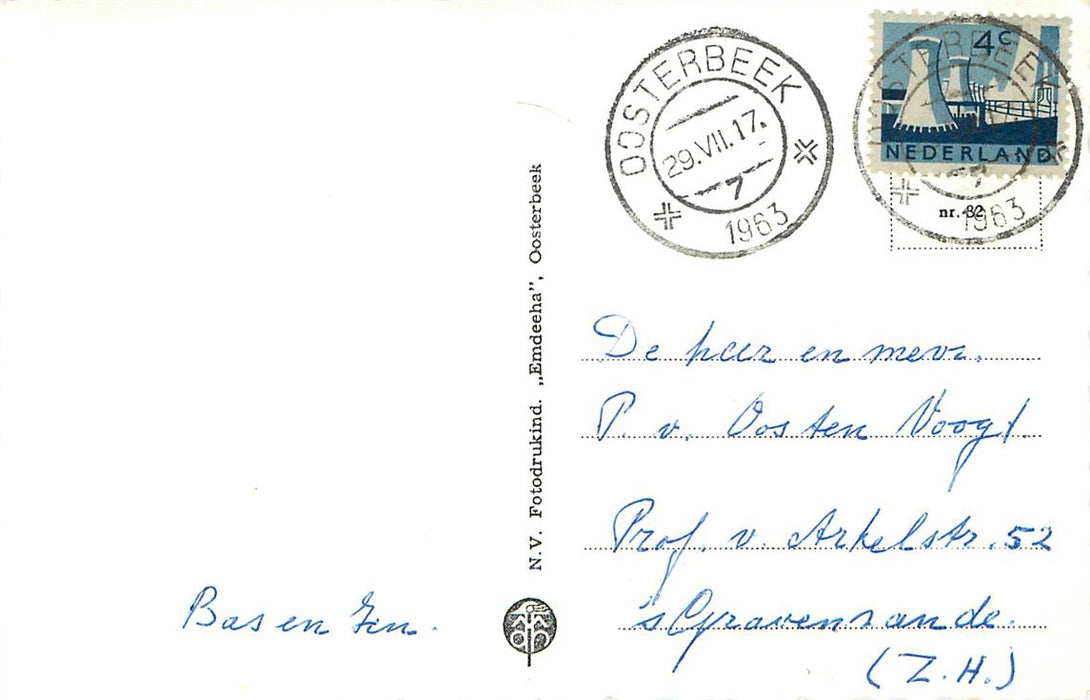 OOSTERBEEK
29.VII.17.
7
1963
4c
NEDERLAND
OOSTERBEEK
7
1963
nr. 32
N.V. Fotodrukind. „Emdeeha”, Oosterbeek
De heer en mevr.
P. v. Oosten Voogt.
Prof. v. Arkelstr. 52
's Gravenzande.
(Z.H.)
Bas en